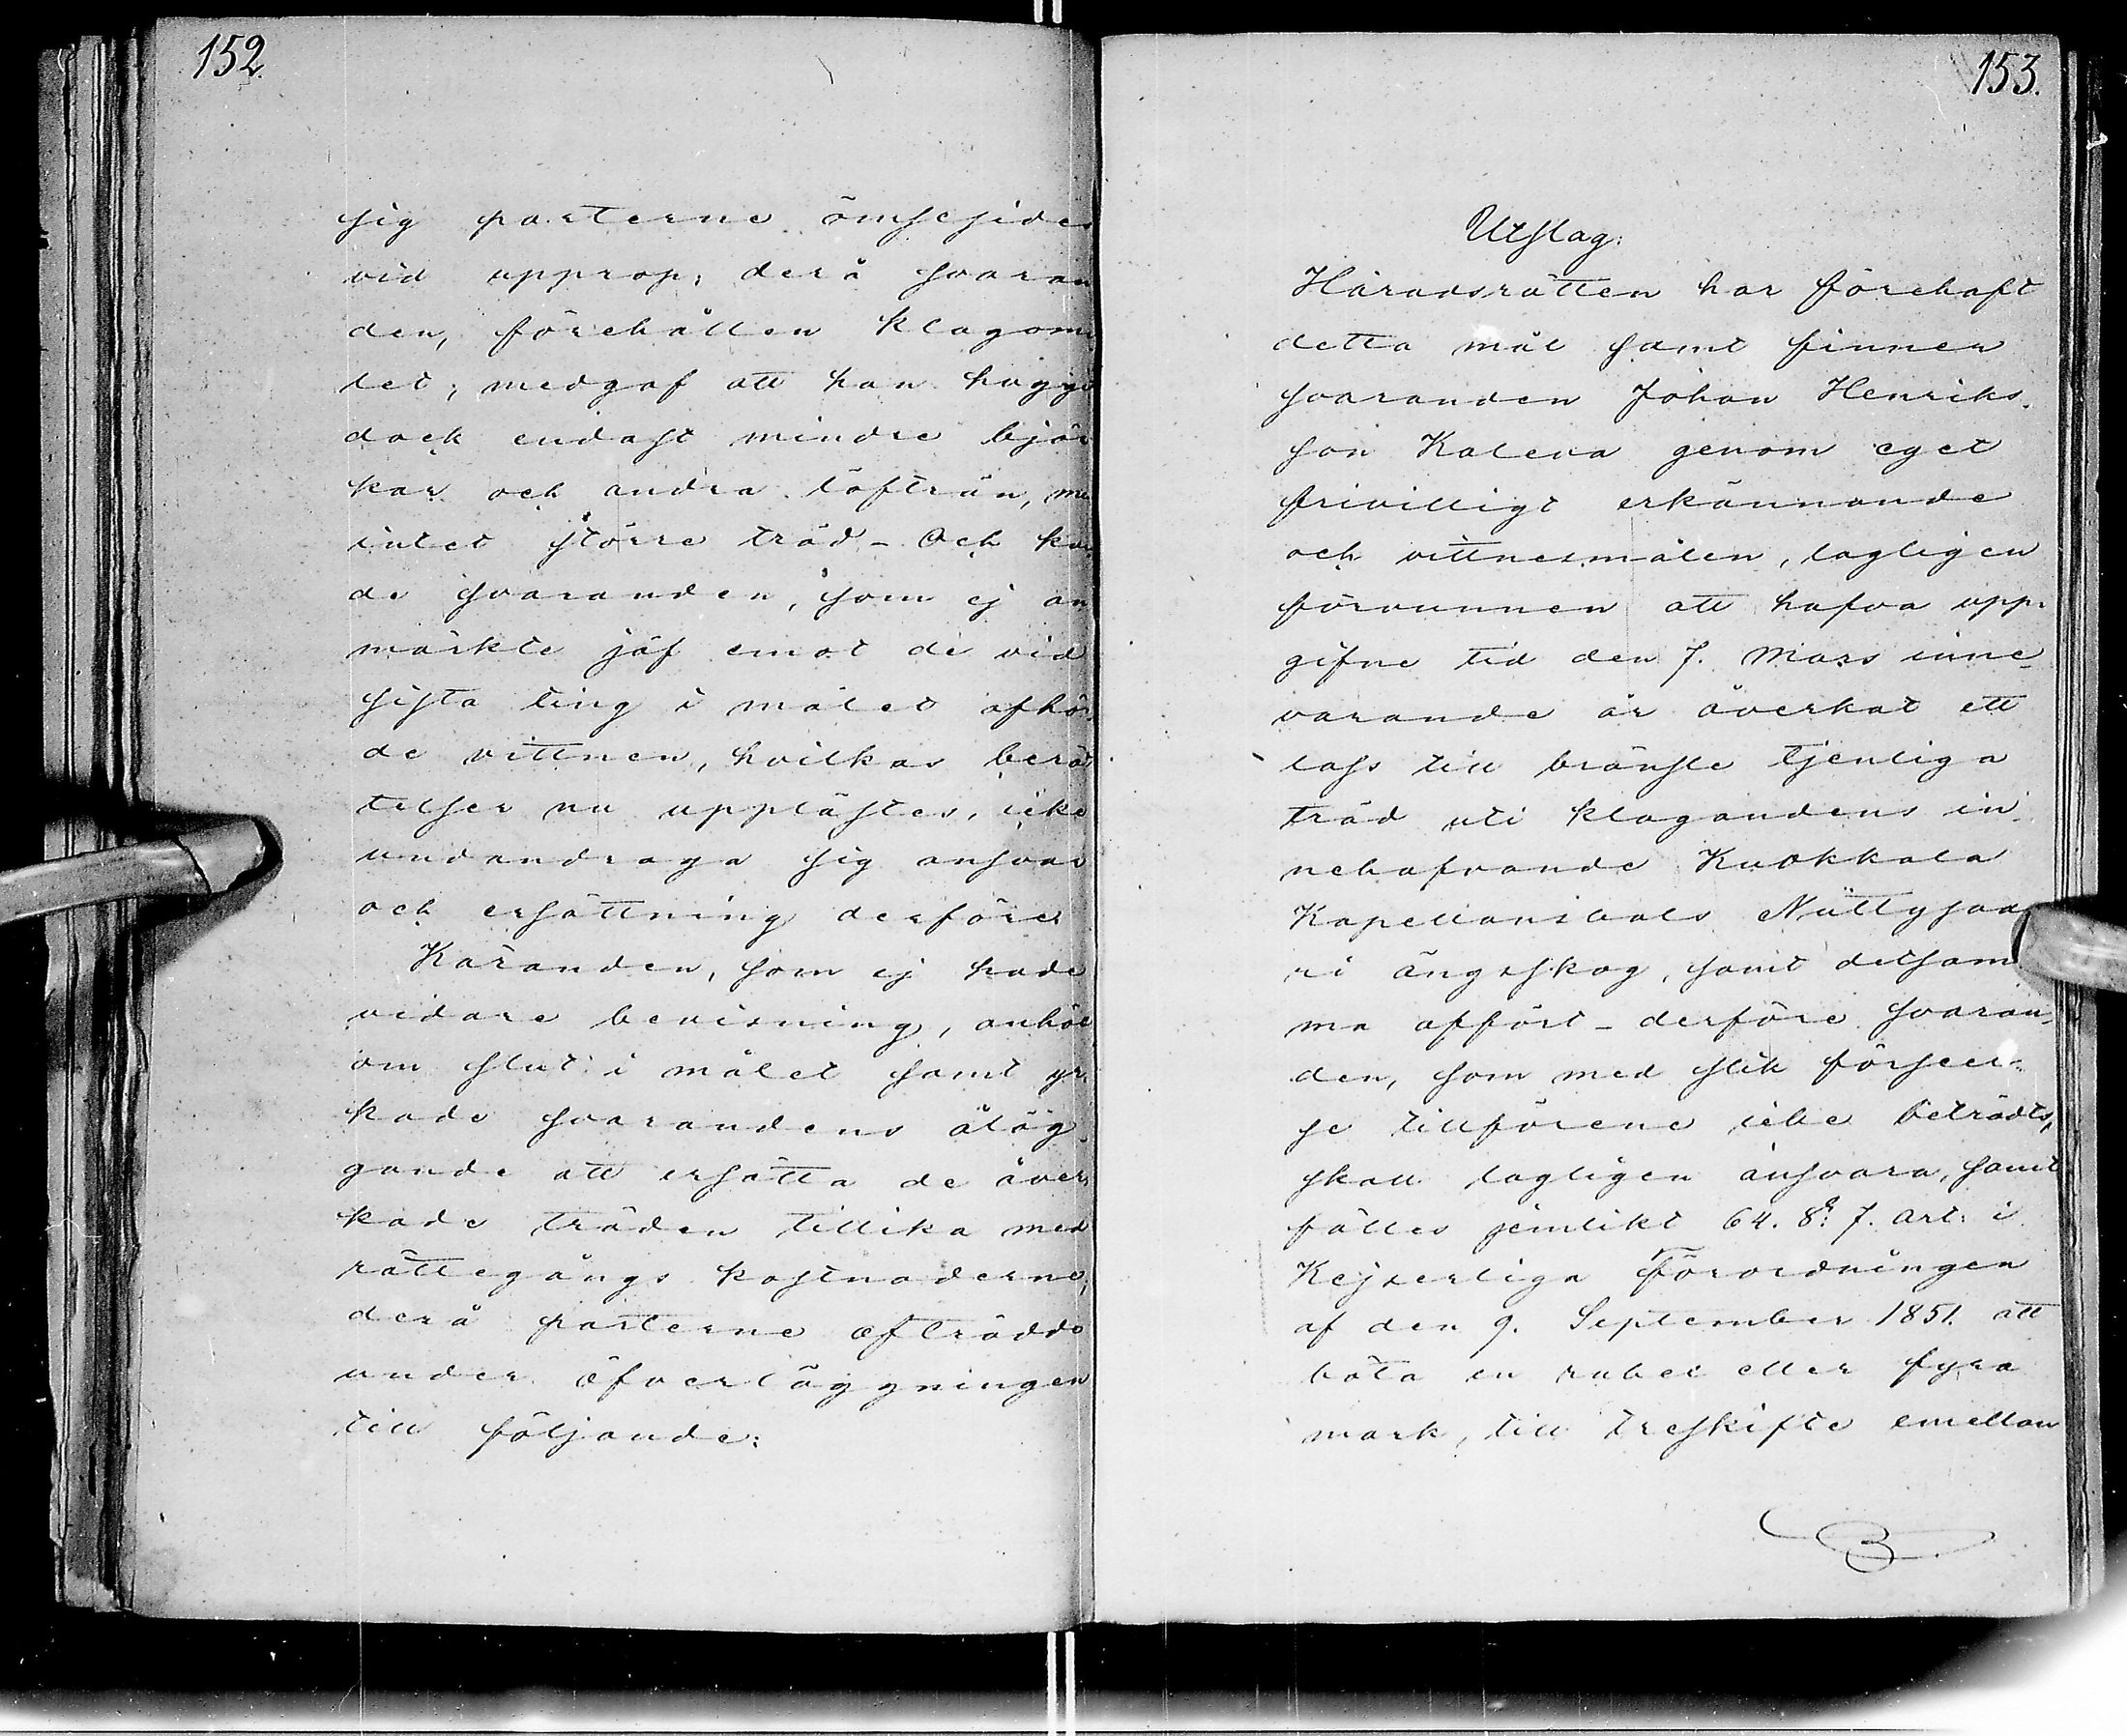 152.
sig parterne ömsesides
vid upprop; derå svaran
den, förehållen klagomå
let, medgaf att han huggit
dock endast mindre bjor
kar och andra löfträn, men
intet större träd - Och kun
de svaranden, som ej an
märkte jäf emot de vid
sista ting i målet afhör
de vittnen, hvilkas berät
telser nu upplästes, icke
undandraga sig ansvar
och ersättning derföre.
Käranden, som ej hade
vidare bevisning, anhöll
om slut i målet samt yr
kade svarandens åläg
gande att ersätta de åver
kade träden tillika med
rättegångs kostnaderne,
derå parterne afträdde
under öfverläggningen
till följande:
153.
Utslag:
Häradsrätten har förehaft
detta mål samt finner
svaranden Johan Henriks
son Kaleva genom eget
frivilligt erkännande
och vittnesmålen, lagligen
förvunnen att hafva upp
gifne tid den 7. Mars inne
varande år åverkat ett
lass till bränsle tjenliga
träd uti klagandens in
nehafvande Kuokkala
Kapellansbols Nättysaa
ri ängsskog, samt detsam
ma affört - derföre svaran
den, som med slik förseel
se tillförene icke beträdts,
skall lagligen ansvara, samt
fälles jemlikt 64. §: 7. Art: i
Kejserliga Förordningen
af den 9. September 1851. att
böta en rubel eller fyra
mark, till treskifte emellan
B